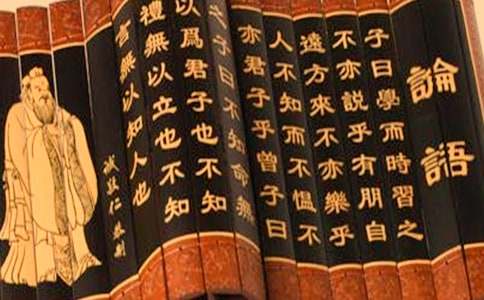 論語
子曰學而時習之
不亦説乎有朋自
遠方來不亦樂乎
人不知而不慍不
亦君子乎曾子曰
子曰不知命無
以爲君子也不知
禮無以立也不知
言無以知人也